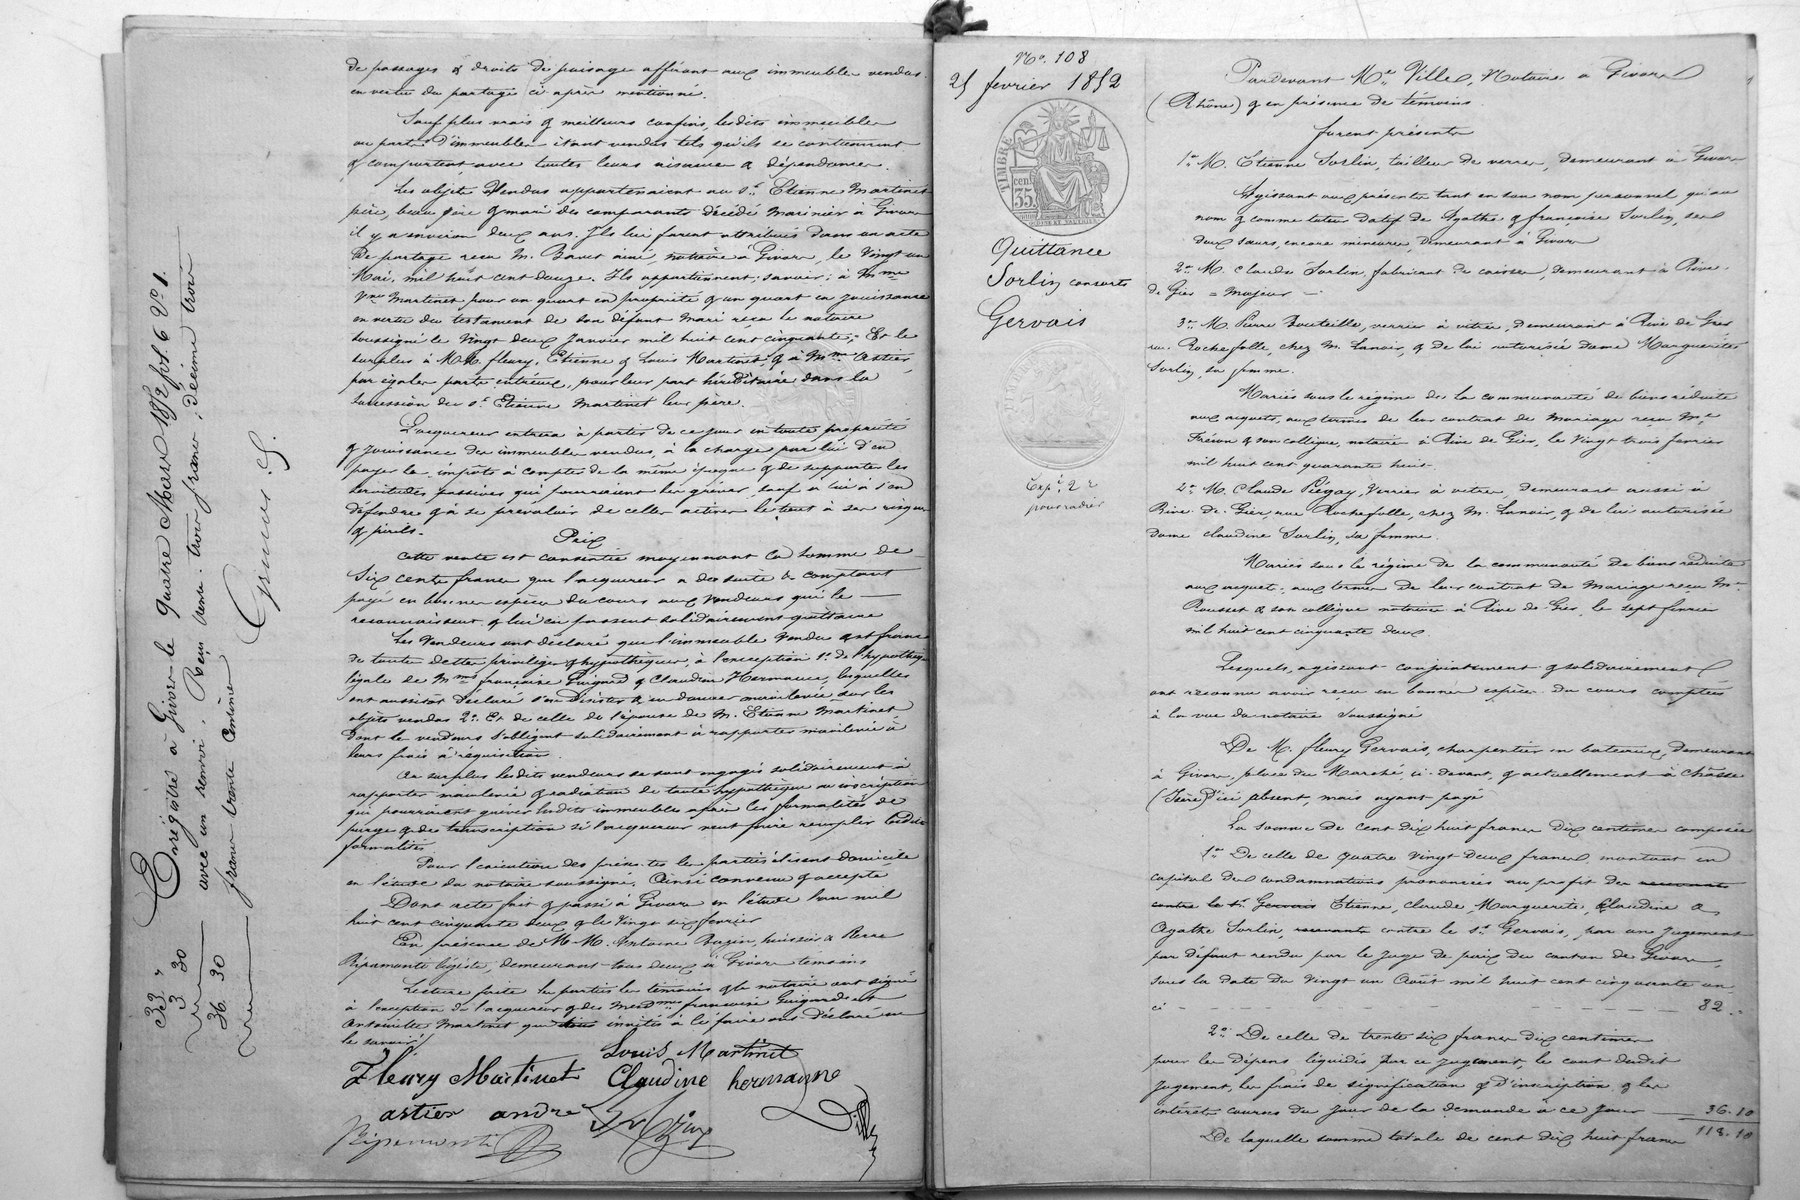 de passages & droits de puisage afférant aux immeubles vendus
en vertu du partage ci après mentionné.
Sauf plus vrais & meilleurs confins, lesdits immeubles
ou partie d'immeubles étant vendus tels qu'ils se contiennent
& comportent avec toutes leurs aisances & dépendances.
Les objets vendus appartenaient au Sr. Etienne Martinet
père, beau père & mari des comparants décédé marinier à Givors
il y a environ deux ans. Ils lui furent attribués dans un acte
de partage reçu M. Bavet ainé, notaire à Givors, le vingt un
Mai, mil huit cent douze. Ils appartiennent, savoir : à Mme
Vve Martinet pour un quart en propriété & un quart en jouissance
en vertu du testament de son défunt mari reçu le notaire
soussigné le vingt deux janvier mil huit cent cinquante ; Et le
surplus à MM. fleury, Etienne & Louis Martinet & à Mme Astier
par égales parts entr'eux, pour leur part héréditaire dans la
succession du Sr. Etienne Martinet leur père.
L'acquéreur entrera à partir de ce jour en toute propriété
& jouissance des immeubles vendus, à la charge par lui d'en
payer les impôts à compter de la même époque & de supporter les
servitudes passives qui pourraient les gréver, sauf à lui à s'en
défendre & à se prévaloir de celles actives le tout à ses risques
& périls.
Prix
Cette vente est consentie moyennant la somme de
Six cents francs que l'acquéreur a de suite & comptant
payé en bonnes espèces du cours aux vendeurs qui le
reconnaissent & lui en passent solidairement quittance
Les vendeurs ont déclaré que l'immeuble vendu est franc
de toutes dettes, privilèges & hypothèques, à l'exception 1° de l'hypothèque
légale de Mmes françoise Guignard & Claudine Hermanne, lesquelles
ont aussitôt déclaré s'en désister & en donner mainlevée sur les
objets vendus 2° Et de celle de l'épouse de M. Etienne Martinet
dont les vendeurs s'obligent solidairement à rapporter mainlevée à
leurs frais à réquisition.
Au surplus lesdits vendeurs se sont engagés solidairement à
rapporter mainlevée & radiation de toute hypothèque ou inscription
qui pourraient gréver lesdits immeubles après les formalités de
purge & de transcription si l'acquéreur veut faire remplir lesdites
formalités.
Pour l'exécution des présentes les parties élisent domicile
en l'étude du notaire soussigné. Ainsi convenu & accepté
Dont acte fait & passé à Givors en l'étude l'an mil
huit cent cinquante deux & le vingt six février
En présence de M.M. Antoine Bazin, huissier & Pierre
Ripamonti légiste, demeurant tous deux à Givors témoins
Lecture faite les parties les témoins & le notaire ont signé
à l'exception de l'acquéreur & des Mesdmes françoise Guignard et
Antoinette Martinet qui invités à le faire ont déclaré ne
le savoir.
Louis Martinet
Fleury Martinet Claudine hermanne
astier andré
Ripamonti
Enregistré à Givors le quatre Mars 1852 fol. 6 Vo 1.
avec un renvoi. Reçu vente : trente trois francs, décime trois
francs trente centimes
33 "
3 30
36. 30
No. 108
25 fevrier 1852
TIMBRE
35 cent
Quittance
Sorlin consorts
Gervais
Expt. 2 r
pour radier
Pardevant Me. Ville, Notaire à Givors
(Rhône) & en présence de témoins
furent présents
1° M. Etienne Sorlin, tailleur de verre, demeurant à Givors
Agissant aux présentes tant en son nom personnel qu'au
nom & comme tuteur datif de Agathe & françoise Sorlin, ses
deux sœurs, encore mineures, demeurant à Givors
2° M. Claude Sorlin, fabricant de caisses, demeurant à Rive
de Gier = Majeur –
3° M. Pierre Bouteille, verrier à vitres, demeurant à Rive de Gier
rue Rochefolle, chez M. Lanoir, & de lui autorisée dame Marguerite
Sorlin, sa femme.
Mariés sous le régime de la communauté de biens réduite
aux acquets, aux termes de leur contrat de mariage reçu Me
Frison & son collègue, notaires à Rive de Gier, le vingt trois fevrier
mil huit cent quarante huit.
2° M. Claude Piégay, Verrier à vitres, demeurant aussi à
Rive de Gier rue Rochefolle, chez M. Lanoir, & de lui autorisée
dame claudine Sorlin, sa femme.
Mariés sous le régime de la communauté de biens réduite
aux acquets, aux termes de leur contrat de mariage reçu Me
Rousset & son collègue notaires à Rive de Gier, le sept fevrier
mil huit cent cinquante deux.
Lesquels, agissant conjointement & solidairement
ont reconnu avoir reçu en bonnes espèces du cours comptées
à la vue du notaire soussigné
De M. fleury Gervais, charpentier en bateaux, demeurant
à Givors, place du Marché ci-devant, & actuellement à Châsse
(Isère) d'ici absent, mais ayant payé
La somme de cent dix huit francs dix centimes composée
1° De celle de quatre vingt deux francs, montant en
capital des condamnations prononcées au profit des
contre le Sr. Gervais Etienne, Claude, Marguerite, Claudine &
Agathe Sorlin, contre le Sr. Gervais, par un jugement
par défaut rendu par le Juge de paix du canton de Givors,
sous la date du vingt un Août mil huit cent cinquante un
ci - - - - - - - - 82. "
2° De celle de trente six francs dix centimes
pour les dépens liquidés par ce jugement, le cout dudit
jugement, les frais de signification & d'inscription & les
intérêts courus du jour de la demande à ce jour 36. 10
118. 10
De laquelle somme totale de cent dix huit francs